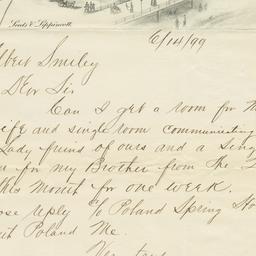 Leeds & Lippincott.
6/14/99
lbert Smiley
Dear Sir
Can I get a room for M
ife and single room communicating
Lady friend of ours and a Sing
for my Brother from The
this Month for one week.
ose reply c/o Poland Spring Ho
Poland Me.
Very